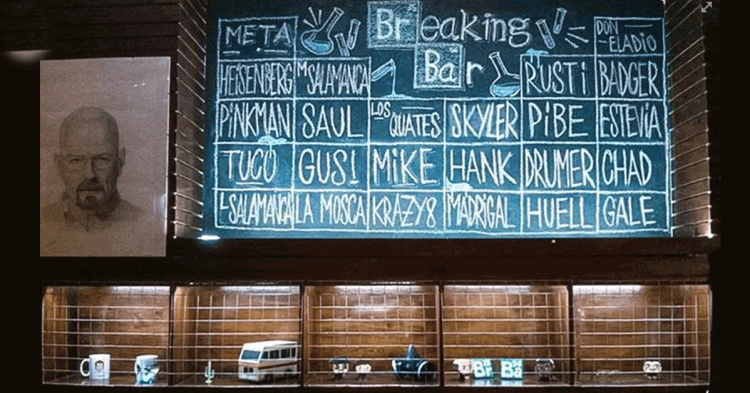 META
Breaking
Bar
DON ELADIO
HEISENBERG M SALAMANCA RUSTi BADGER
PiNKMAN SAUL LOS CUATES SKYLER PiBE ESTEViA
TUCO GUS! MiKE HANK DRUMER CHAD
L SALAMANCA LA MOSCA KRAZY8 MADRiGAL HUELL GALE
Br Ba